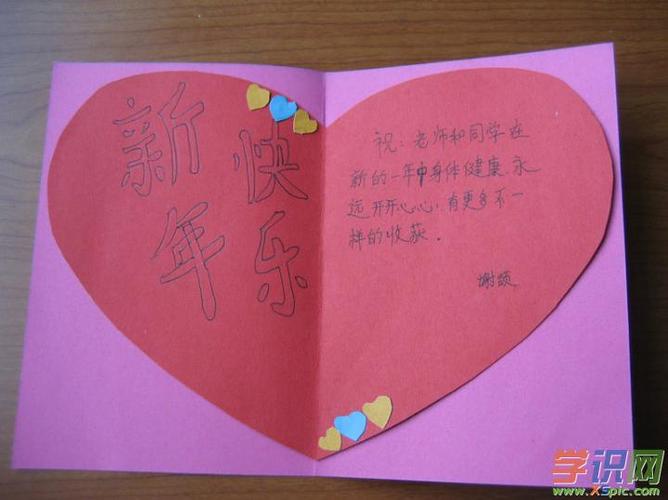 新年
快乐
祝：老师和同学在
新的一年中身体健康、永
远开开心心，有更多不一
样的收获。
谢颂
学识网
www.XSpic.com